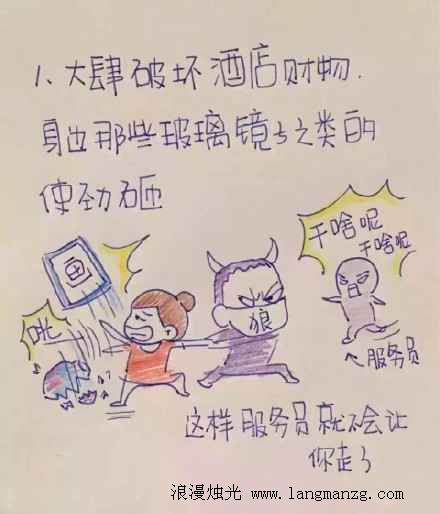 1、大肆破坏酒店财物.
身边那些玻璃镜子之类的
使劲砸
画
干啥呢
干啥呢
咣
狼
←服务员
这样服务员就不会让
你走了
浪漫烛光 www.langmanzg.com